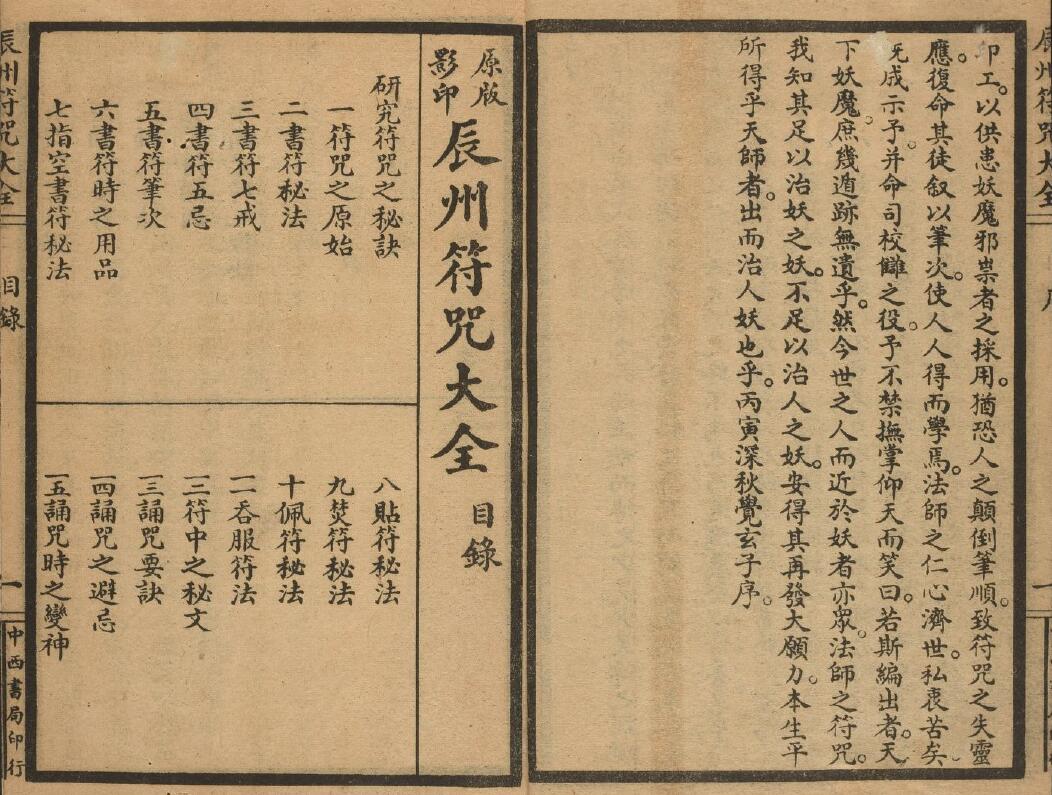 辰州符咒大全
印工。以供患妖魔邪祟者之採用。猶恐人之顛倒筆順。致符咒之失靈
應。復命其徒叙以筆次。使人人得而學焉。法師之仁心濟世。私衷苦矣。
既成示予。并命司校讎之役。予不禁撫掌仰天而笑曰。若斯編出者。天
下妖魔。庶幾遁跡無遺乎。然今世之人而近於妖者亦衆。法師之符咒。
我知其足以治妖之妖。不足以治人之妖。安得其再發大願力。本生平
所得乎天師者。出而治人妖也乎。丙寅深秋覺玄子序。
原版
影印
辰州符咒大全
目錄
研究符咒之秘訣
一符咒之原始
二書符秘法
三書符七戒
四書符五忌
五書符筆次
六書符時之用品
七指空書符秘法
八貼符秘法
九焚符秘法
十佩符秘法
一一吞服符法
一二符中之秘文
一三誦咒要訣
一四誦咒之避忌
一五誦咒時之變神
辰州符咒大全
目錄
一
中西書局印行